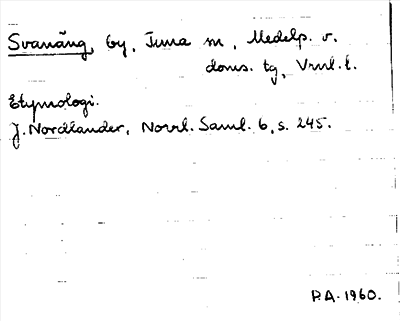 Svanäng, by, Tuna sn, Medelp. v.
doms. tg, Vrnl. l.
Etymologi.
J. Nordlander, Norrl. Saml. 6, s. 245.
P.A. 1960.